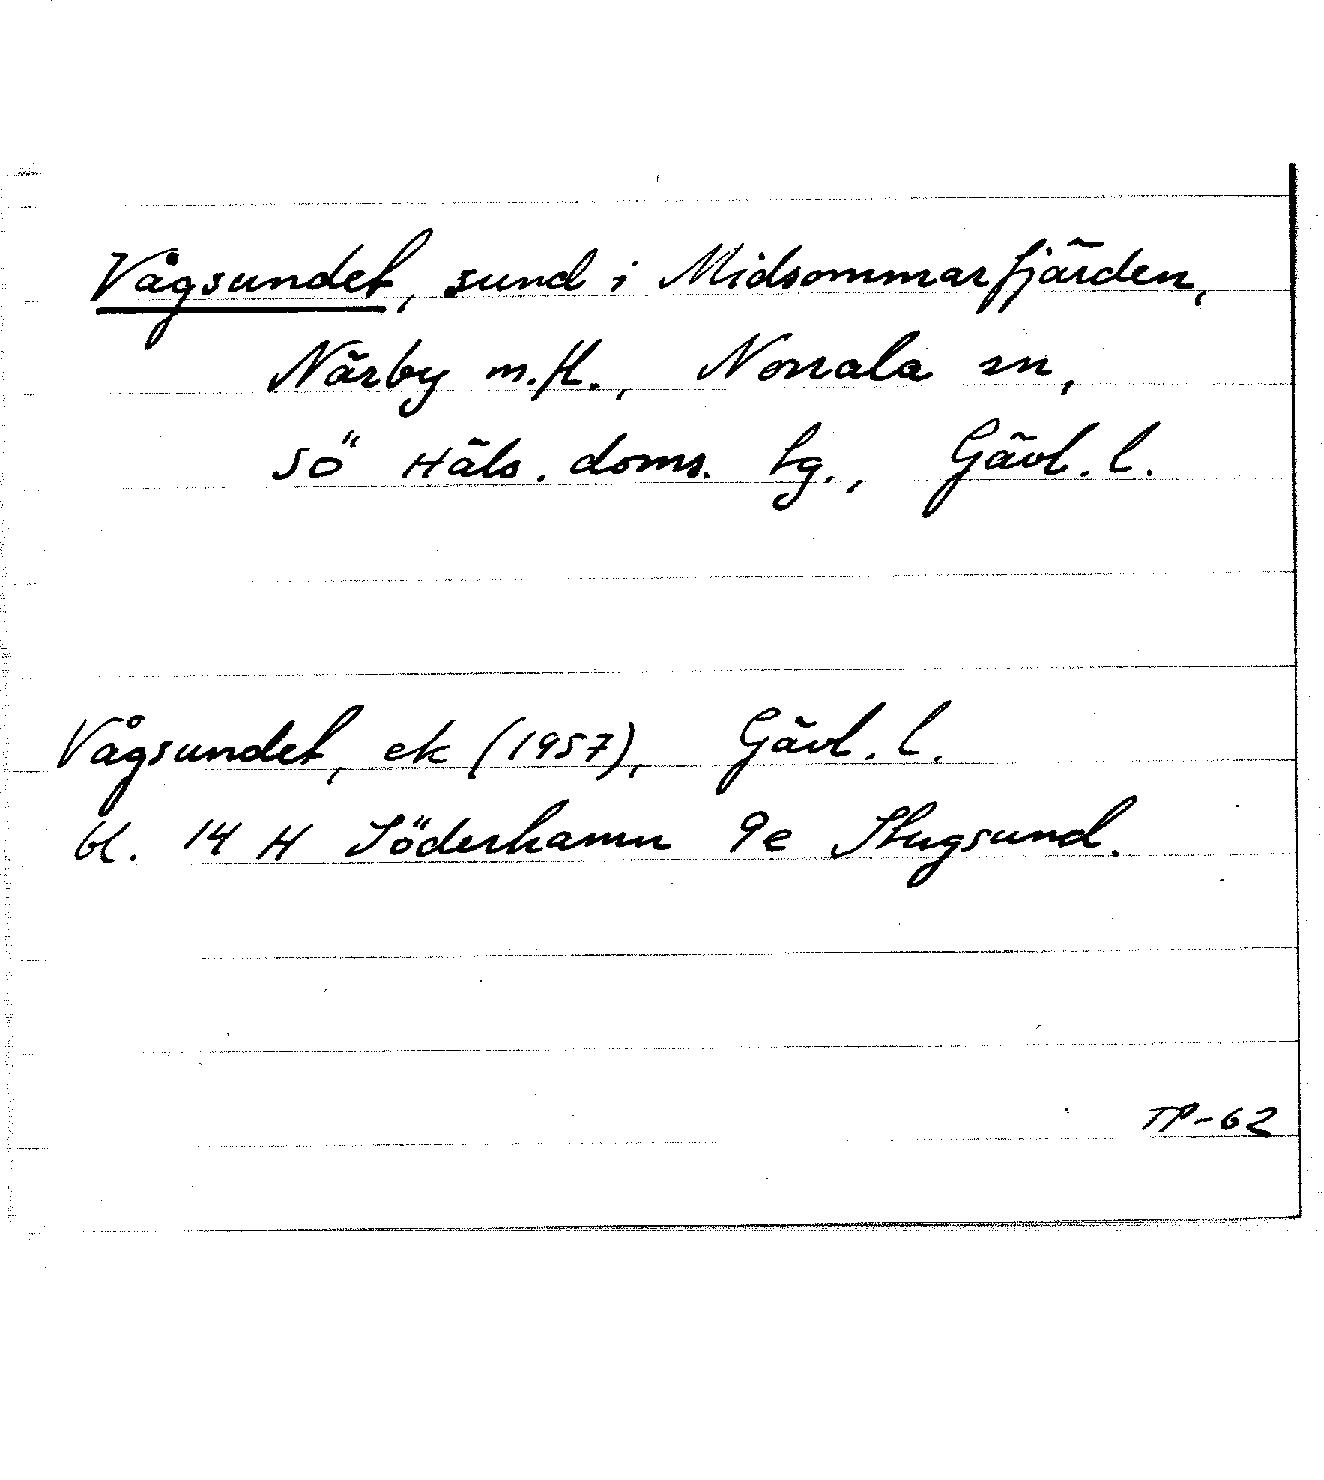 Vågsundet, sund i Midsommarfjärden,
Närby m.fl., Norrala sn,
sö Häls. doms. tg., Gävl. l.
Vågsundet, ek (1957), Gävl. l.
bl. 14 H Söderhamn 9e Stugsund.
TP-62